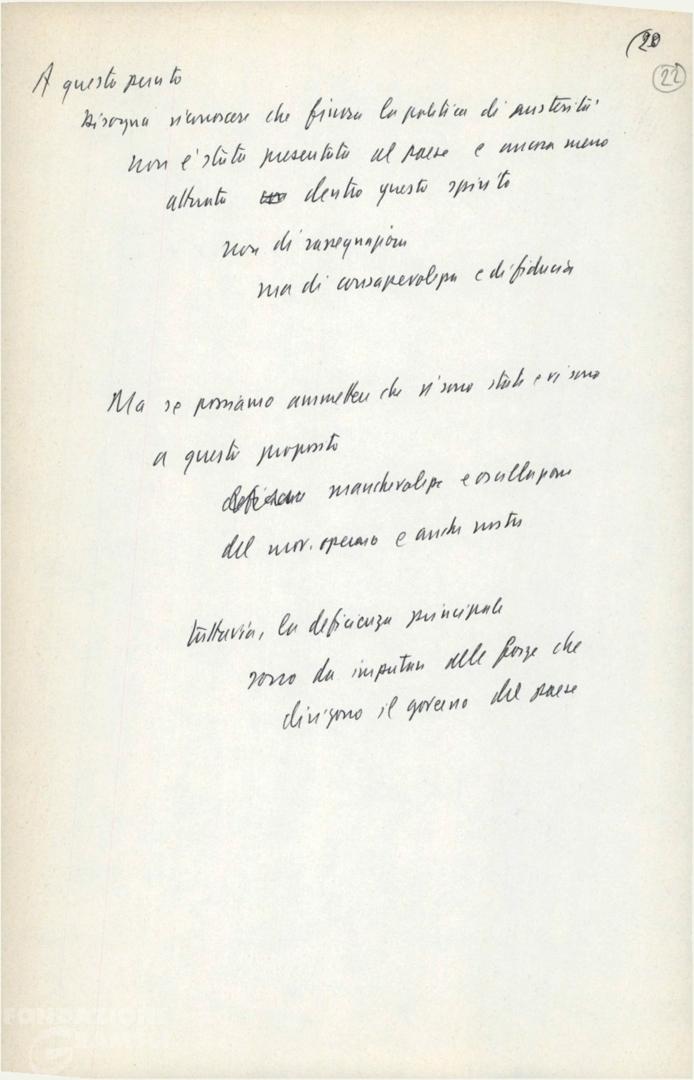 (20
22
A questo punto
bisogna riconoscere che finora la politica di austerità
non è stata presentata al paese e ancora meno
attuata dentro questo spirito
non di rassegnazione
ma di consapevolezza e di fiducia
Ma se possiamo ammettere che vi sono state e vi sono
a questo proposito
manchevolezze e oscillazioni
del mov. operaio e anche nostre
tuttavia, la deficienza principale
sono da imputare alle forze che
dirigono il governo del paese
FONDAZIONE
GRAMSCI